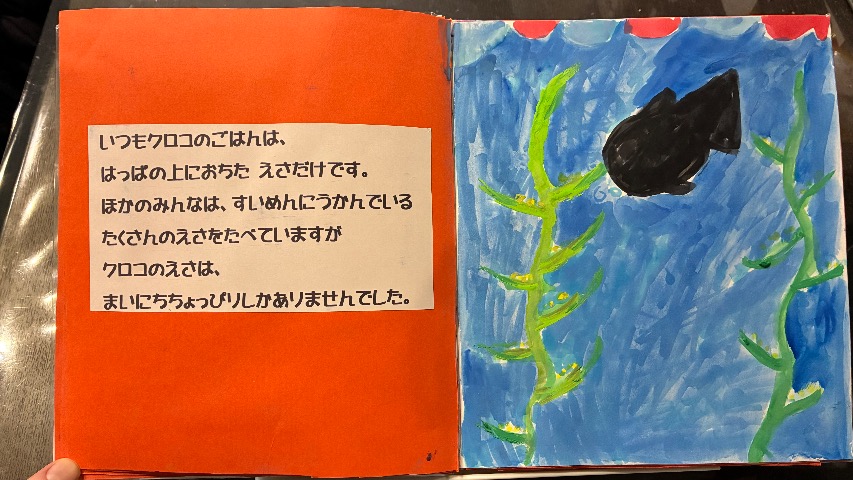 いつもクロコのごはんは、
はっぱの上におちた えさだけです。
ほかのみんなは、すいめんにうかんでいる
たくさんのえさをたべていますが
クロコのえさは、
まいにちちょっぴりしかありませんでした。